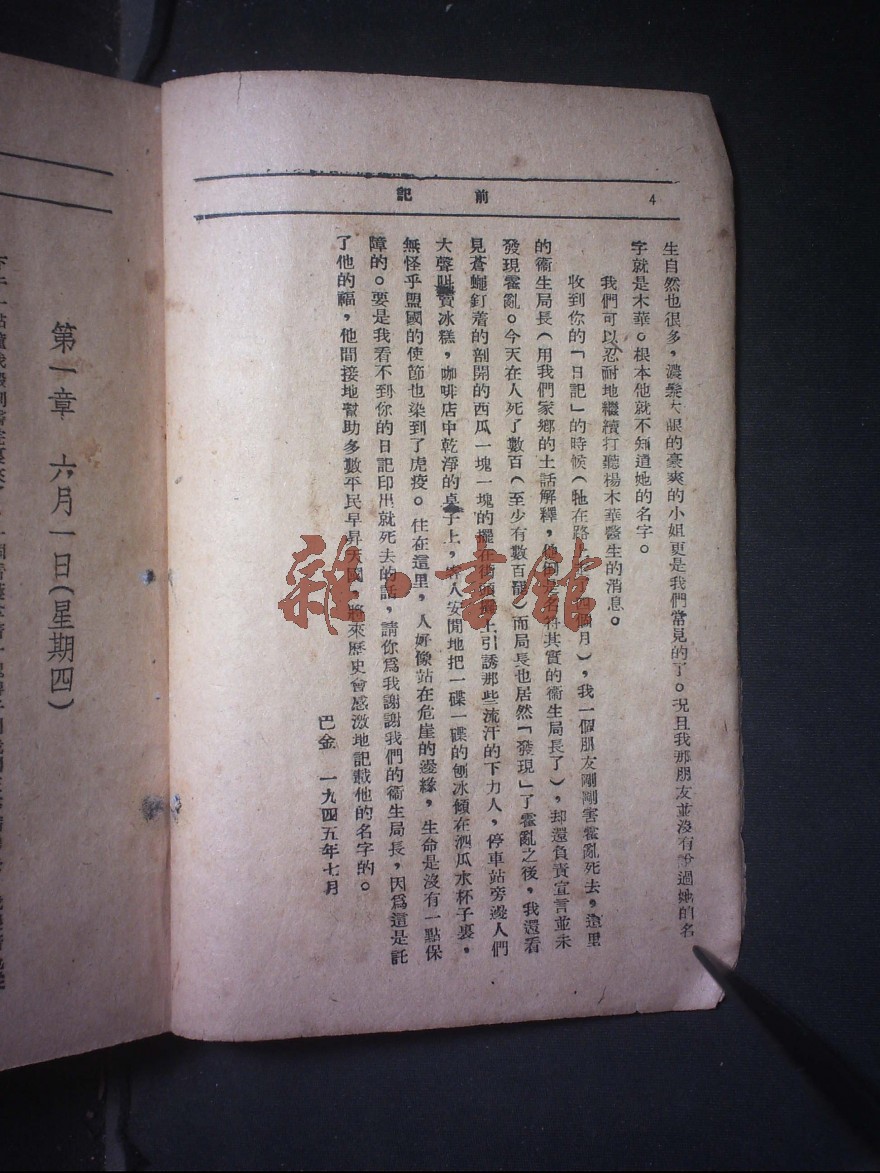 前記
4
生自然也很多，濃髮大眼的豪爽的小姐更是我們常見的了。况且我那朋友並沒有說過她的名
字就是木華。根本他就不知道她的名字。
我們可以忍耐地繼續打聽楊木華醫生的消息。
收到你的「日記」的時候（牠在路四個月），我一個朋友剛剛害霍亂死去，這里
的衞生局長（用我們家鄉的土話解釋，他倒是名符其實的衞生局長了），却還負責宣言並未
發現霍亂。今天在人死了數百（至少有數百罷）而局長也居然「發現」了霍亂之後，我還看
見蒼蠅釘着的剖開的西瓜一塊一塊的擺在街頭攤上引誘那些流汗的下力人，停車站旁邊人們
大聲叫賣冰糕，咖啡店中乾淨的桌子上，客人安閒地把一碟一碟的刨冰傾在西瓜水杯子裏。
無怪乎盟國的使節也染到了虎疫。住在這里，人好像站在危崖的邊緣，生命是沒有一點保
障的。要是我看不到你的日記印出就死去的話，請你爲我謝謝我們的衞生局長，因爲這是託
了他的福，他間接地幫助多數平民早昇天國，將來歷史會感激地記載他的名字的。
巴金　一九四五年七月
第一章　六月一日（星期四）
雜·書館